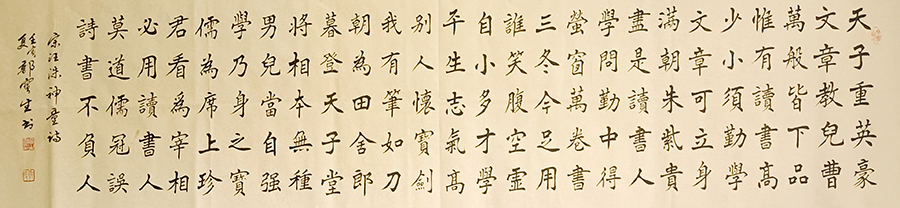 天子重英豪
文章教兒曹
萬般皆下品
惟有讀書高
少小須勤學
文章可立身
滿朝朱紫貴
盡是讀書人
學問勤中得
螢窗萬卷書
三冬今足用
誰笑腹空虛
自小多才學
平生志氣高
別人懷寶劍
我有筆如刀
朝為田舍郎
暮登天子堂
將相本無種
男兒當自强
學乃身之寶
儒為席上珍
君看為宰相
必用讀書人
莫道儒冠誤
詩書不負人
宋汪洙神童詩